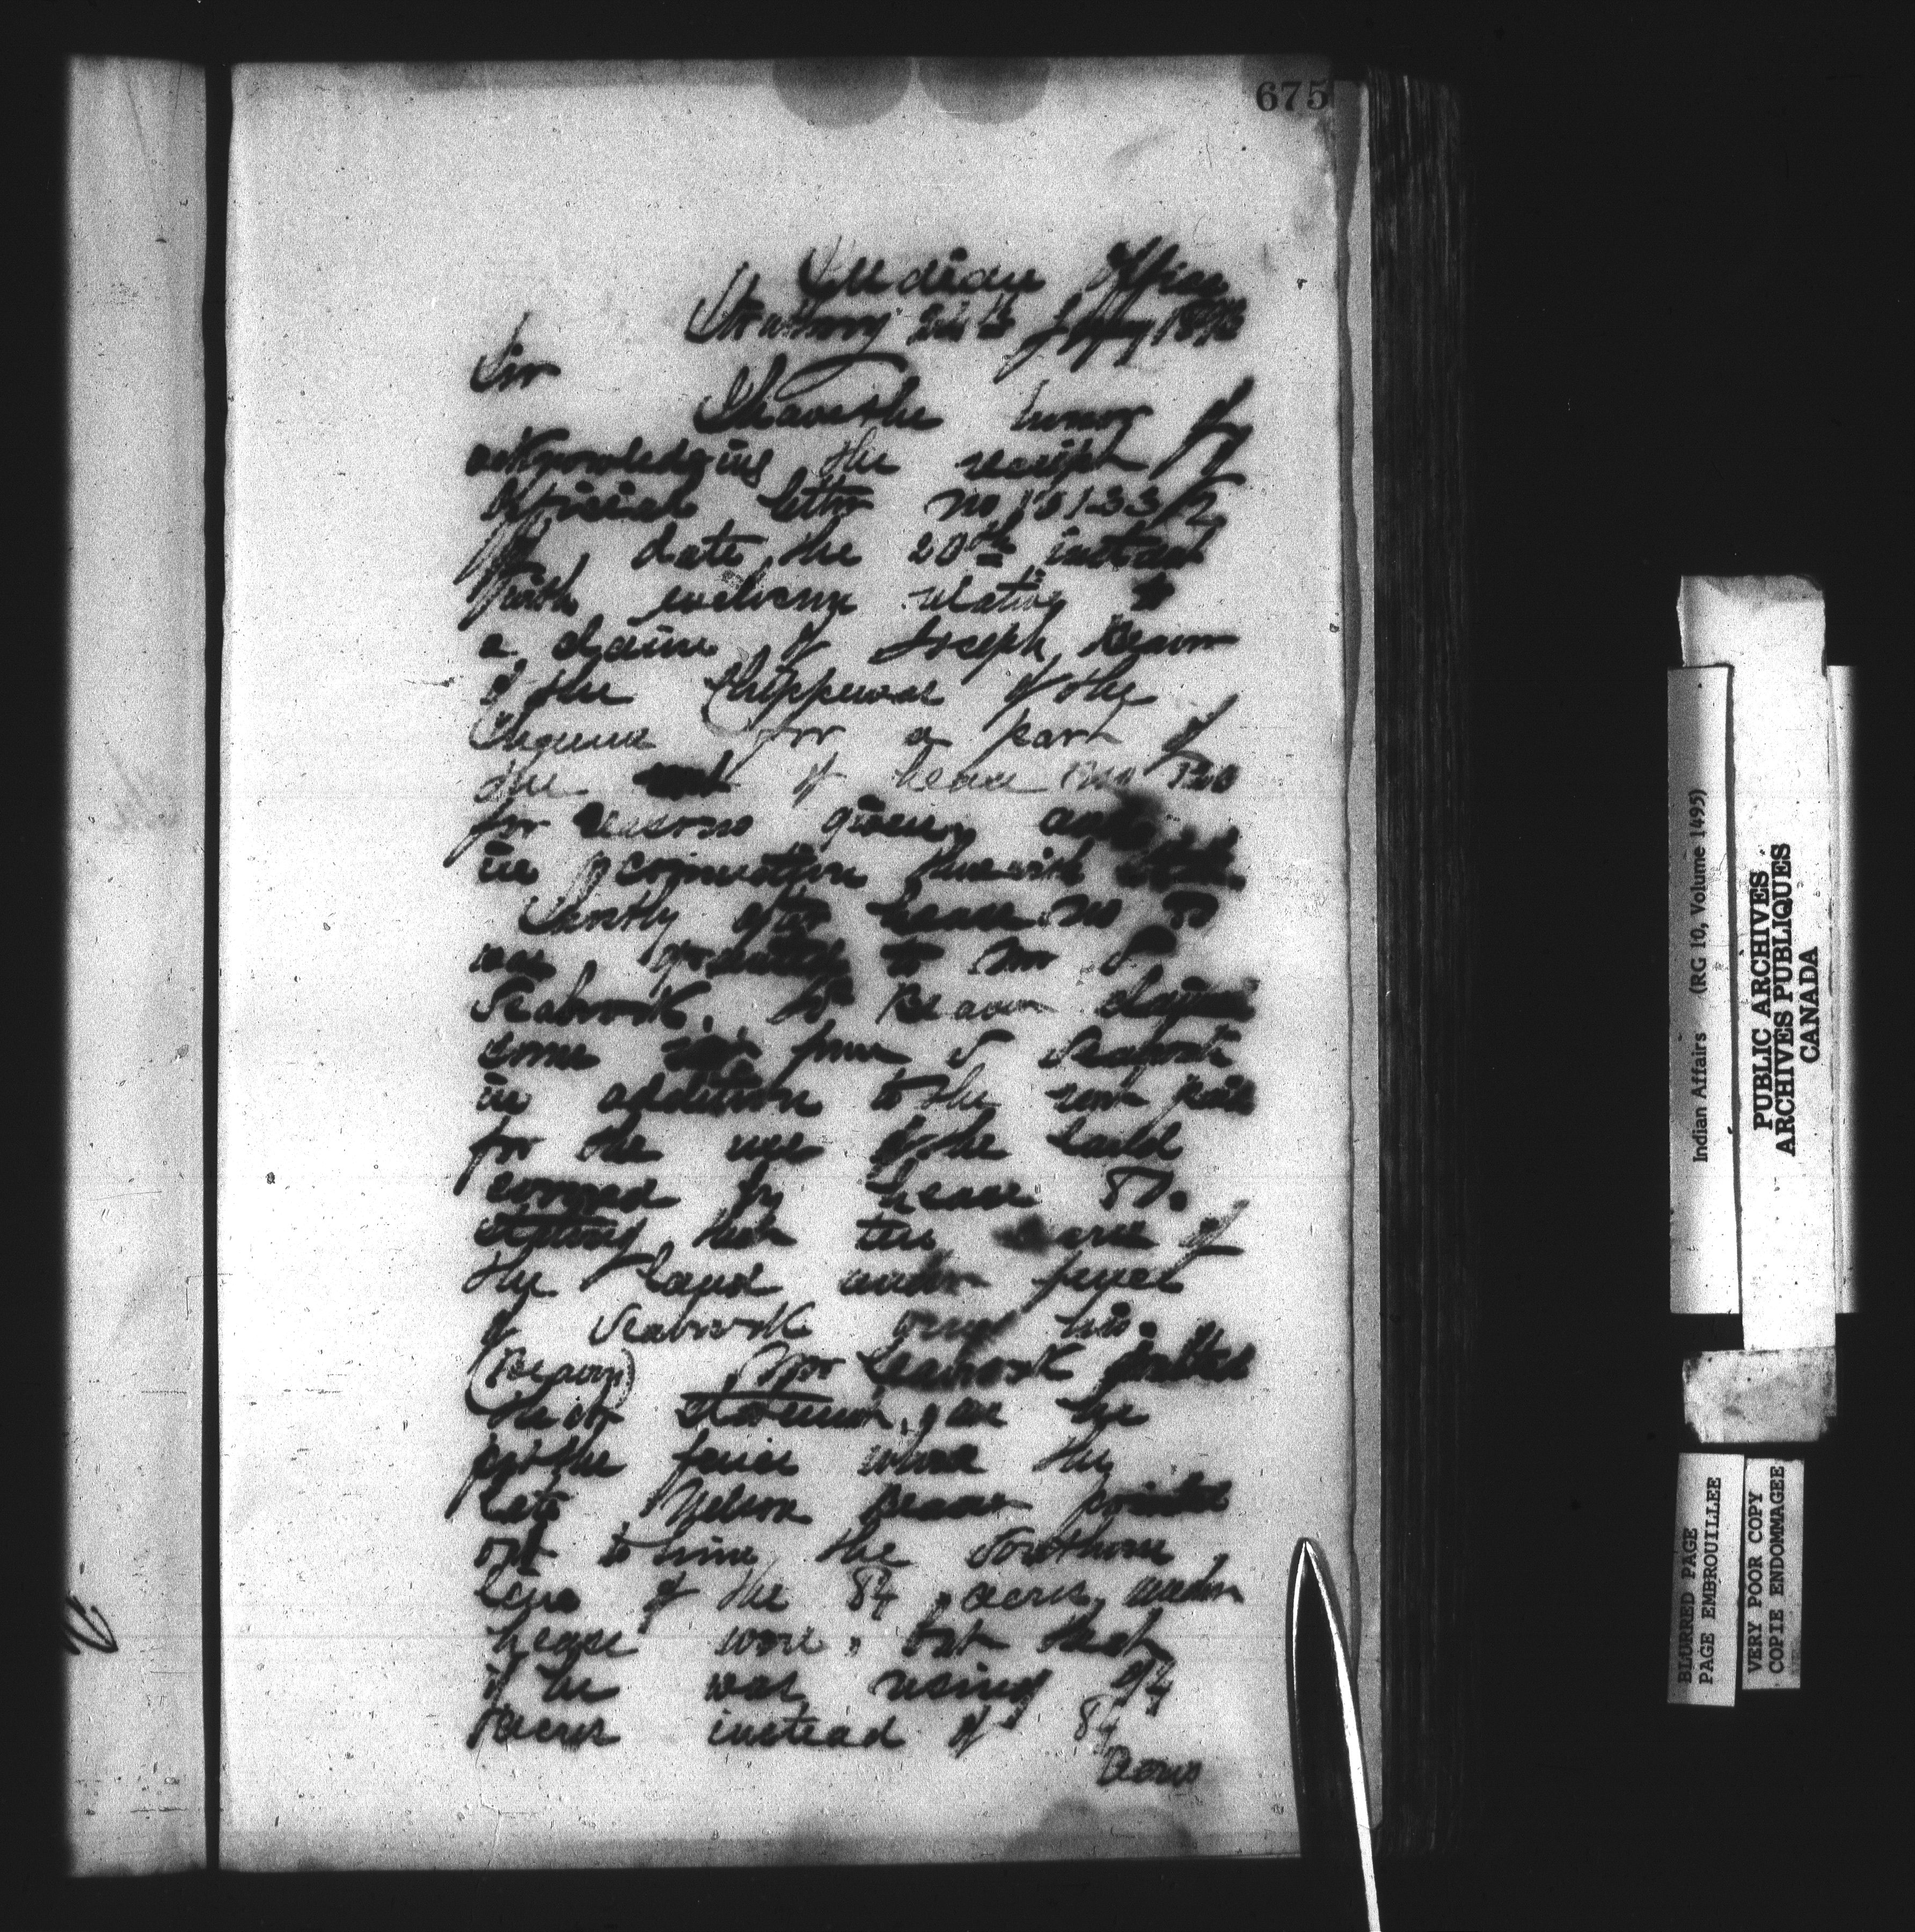 675
Indian Office
Strathroy
Sir
I have the honor of
acknowledging the receipt of
Official letter no
of date the 20th instant
with relating to
a claim of Joseph Beaver
of the Chippewas of the
Thames for a part of
the rent of lease no
for reasons given, and
in
Shortly after lease no
was granted to Mr S
Seabrook, Jos Beaver claimed
some rent from S Seabrook
in addition to the rent paid
for the use of the land
covered by lease 87.
stating that ten acres of
the land under fence
of Seabrook his.
(Beaver) Mr Seabrook doubted
their statement, as he
put the fence where the
late Nelson Beaver pointed
out to him the Southern
line of the 84 acres under
lease were, but that
if he was using 94
Acres instead of 84
Acres
Indian Affairs (RG 10, Volume 1495)
PUBLIC ARCHIVES
ARCHIVES PUBLIQUES
CANADA
BLURRED PAGE
PAGE EMBROUILLEE
VERY POOR COPY
COPIE ENDOMMAGEE